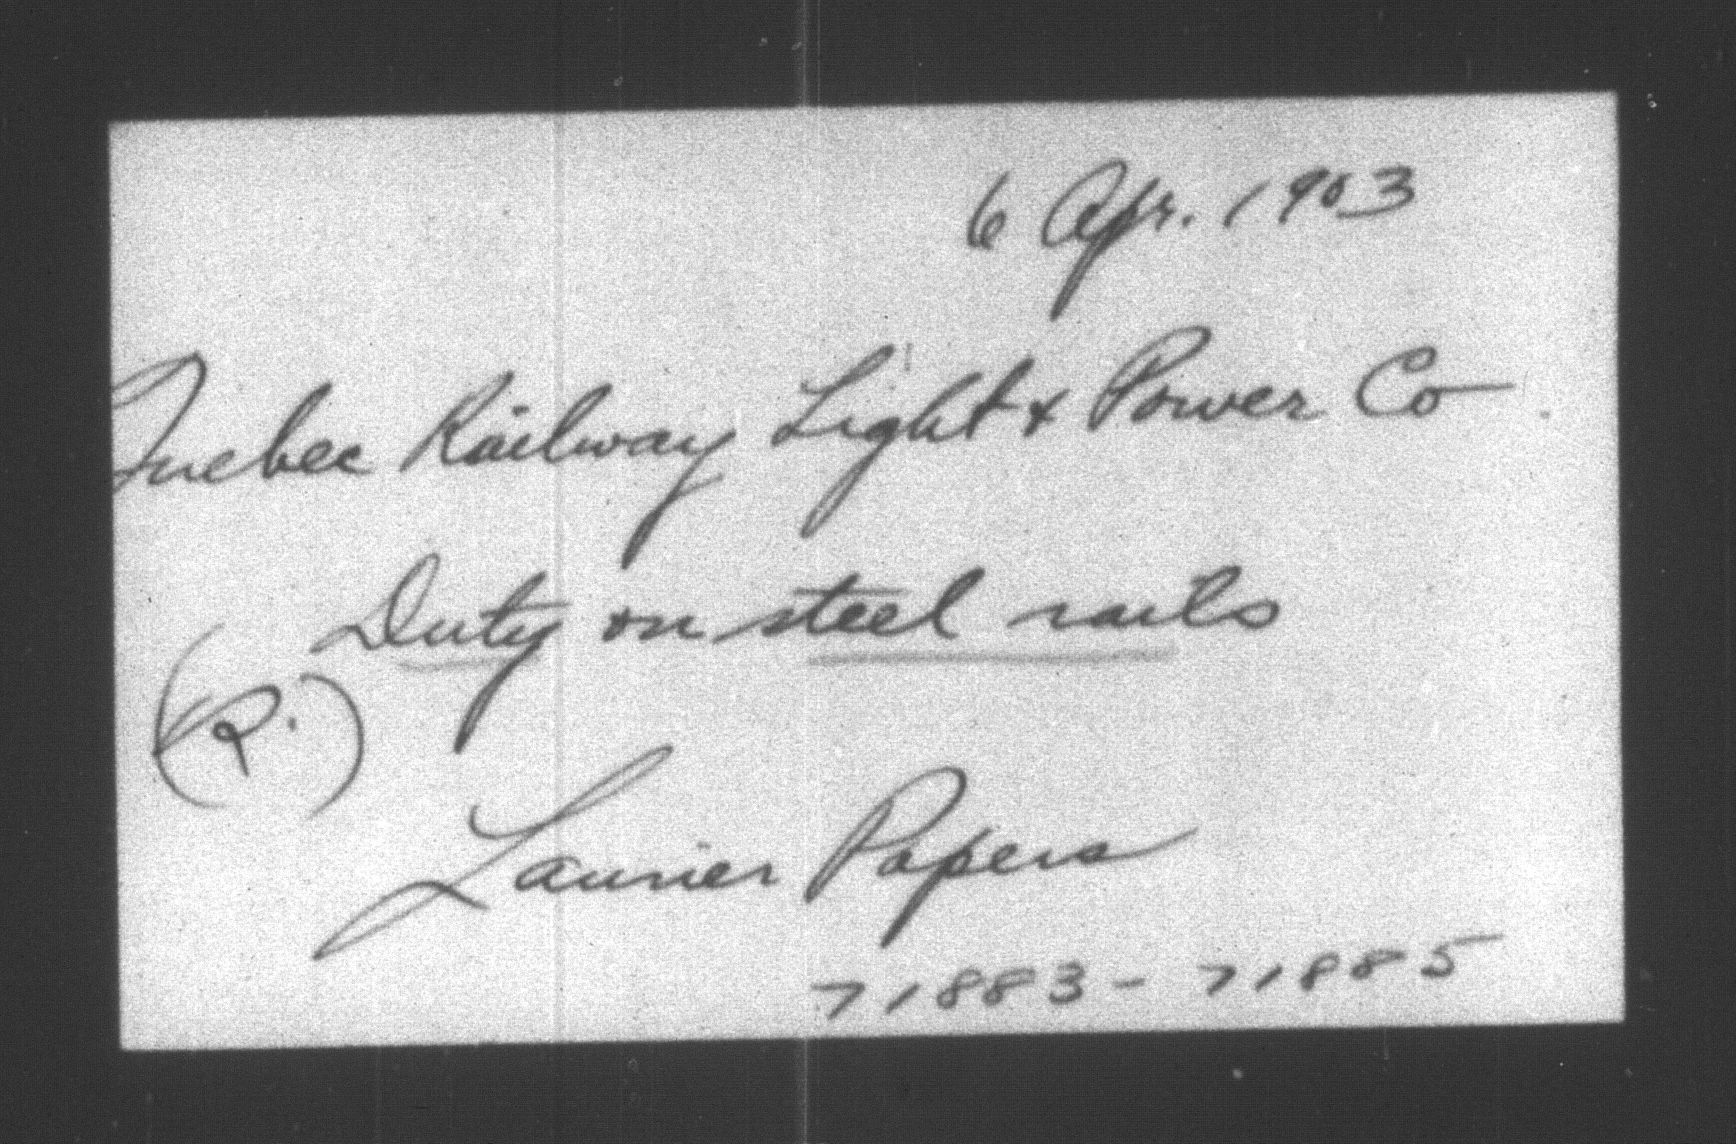 6 Apr. 1903
Quebec Railway Light & Power Co.
Duty on steel rails
(R.)
Laurier Papers
71883 - 71885